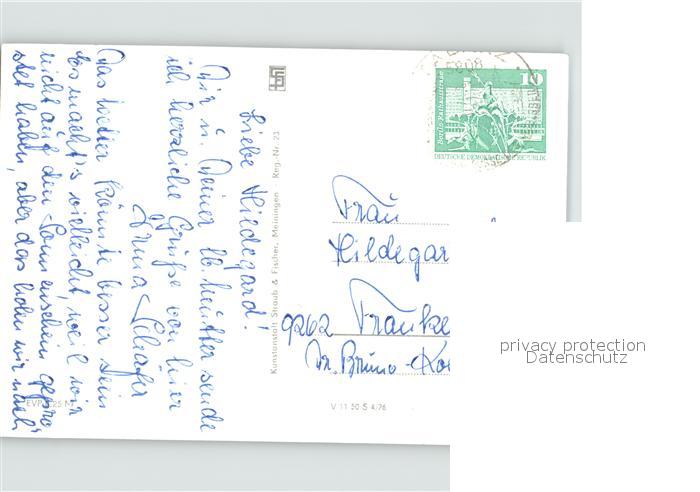 Liebe Hildegard!
Dir u. Deiner lb. Mutter sende
ich herzliche Grüße von hier
Schäfer
Das Wetter könnte besser sein
das macht's vielleicht, weil wir
nicht auf den Sonnenschein gepros
tet haben, aber das holen wir nach
EVP 0.25 M
Kunstanstalt Straub & Fischer, Meiningen Reg.-Nr. 23
5808
10
Berlin Rathausstraße
DEUTSCHE DEMOKRATISCHE REPUBLIK
Frau
Hildegar
9262 Franke
Dr. Bruno-Ko
V 11 50 S 4/76
privacy protection
Datenschutz